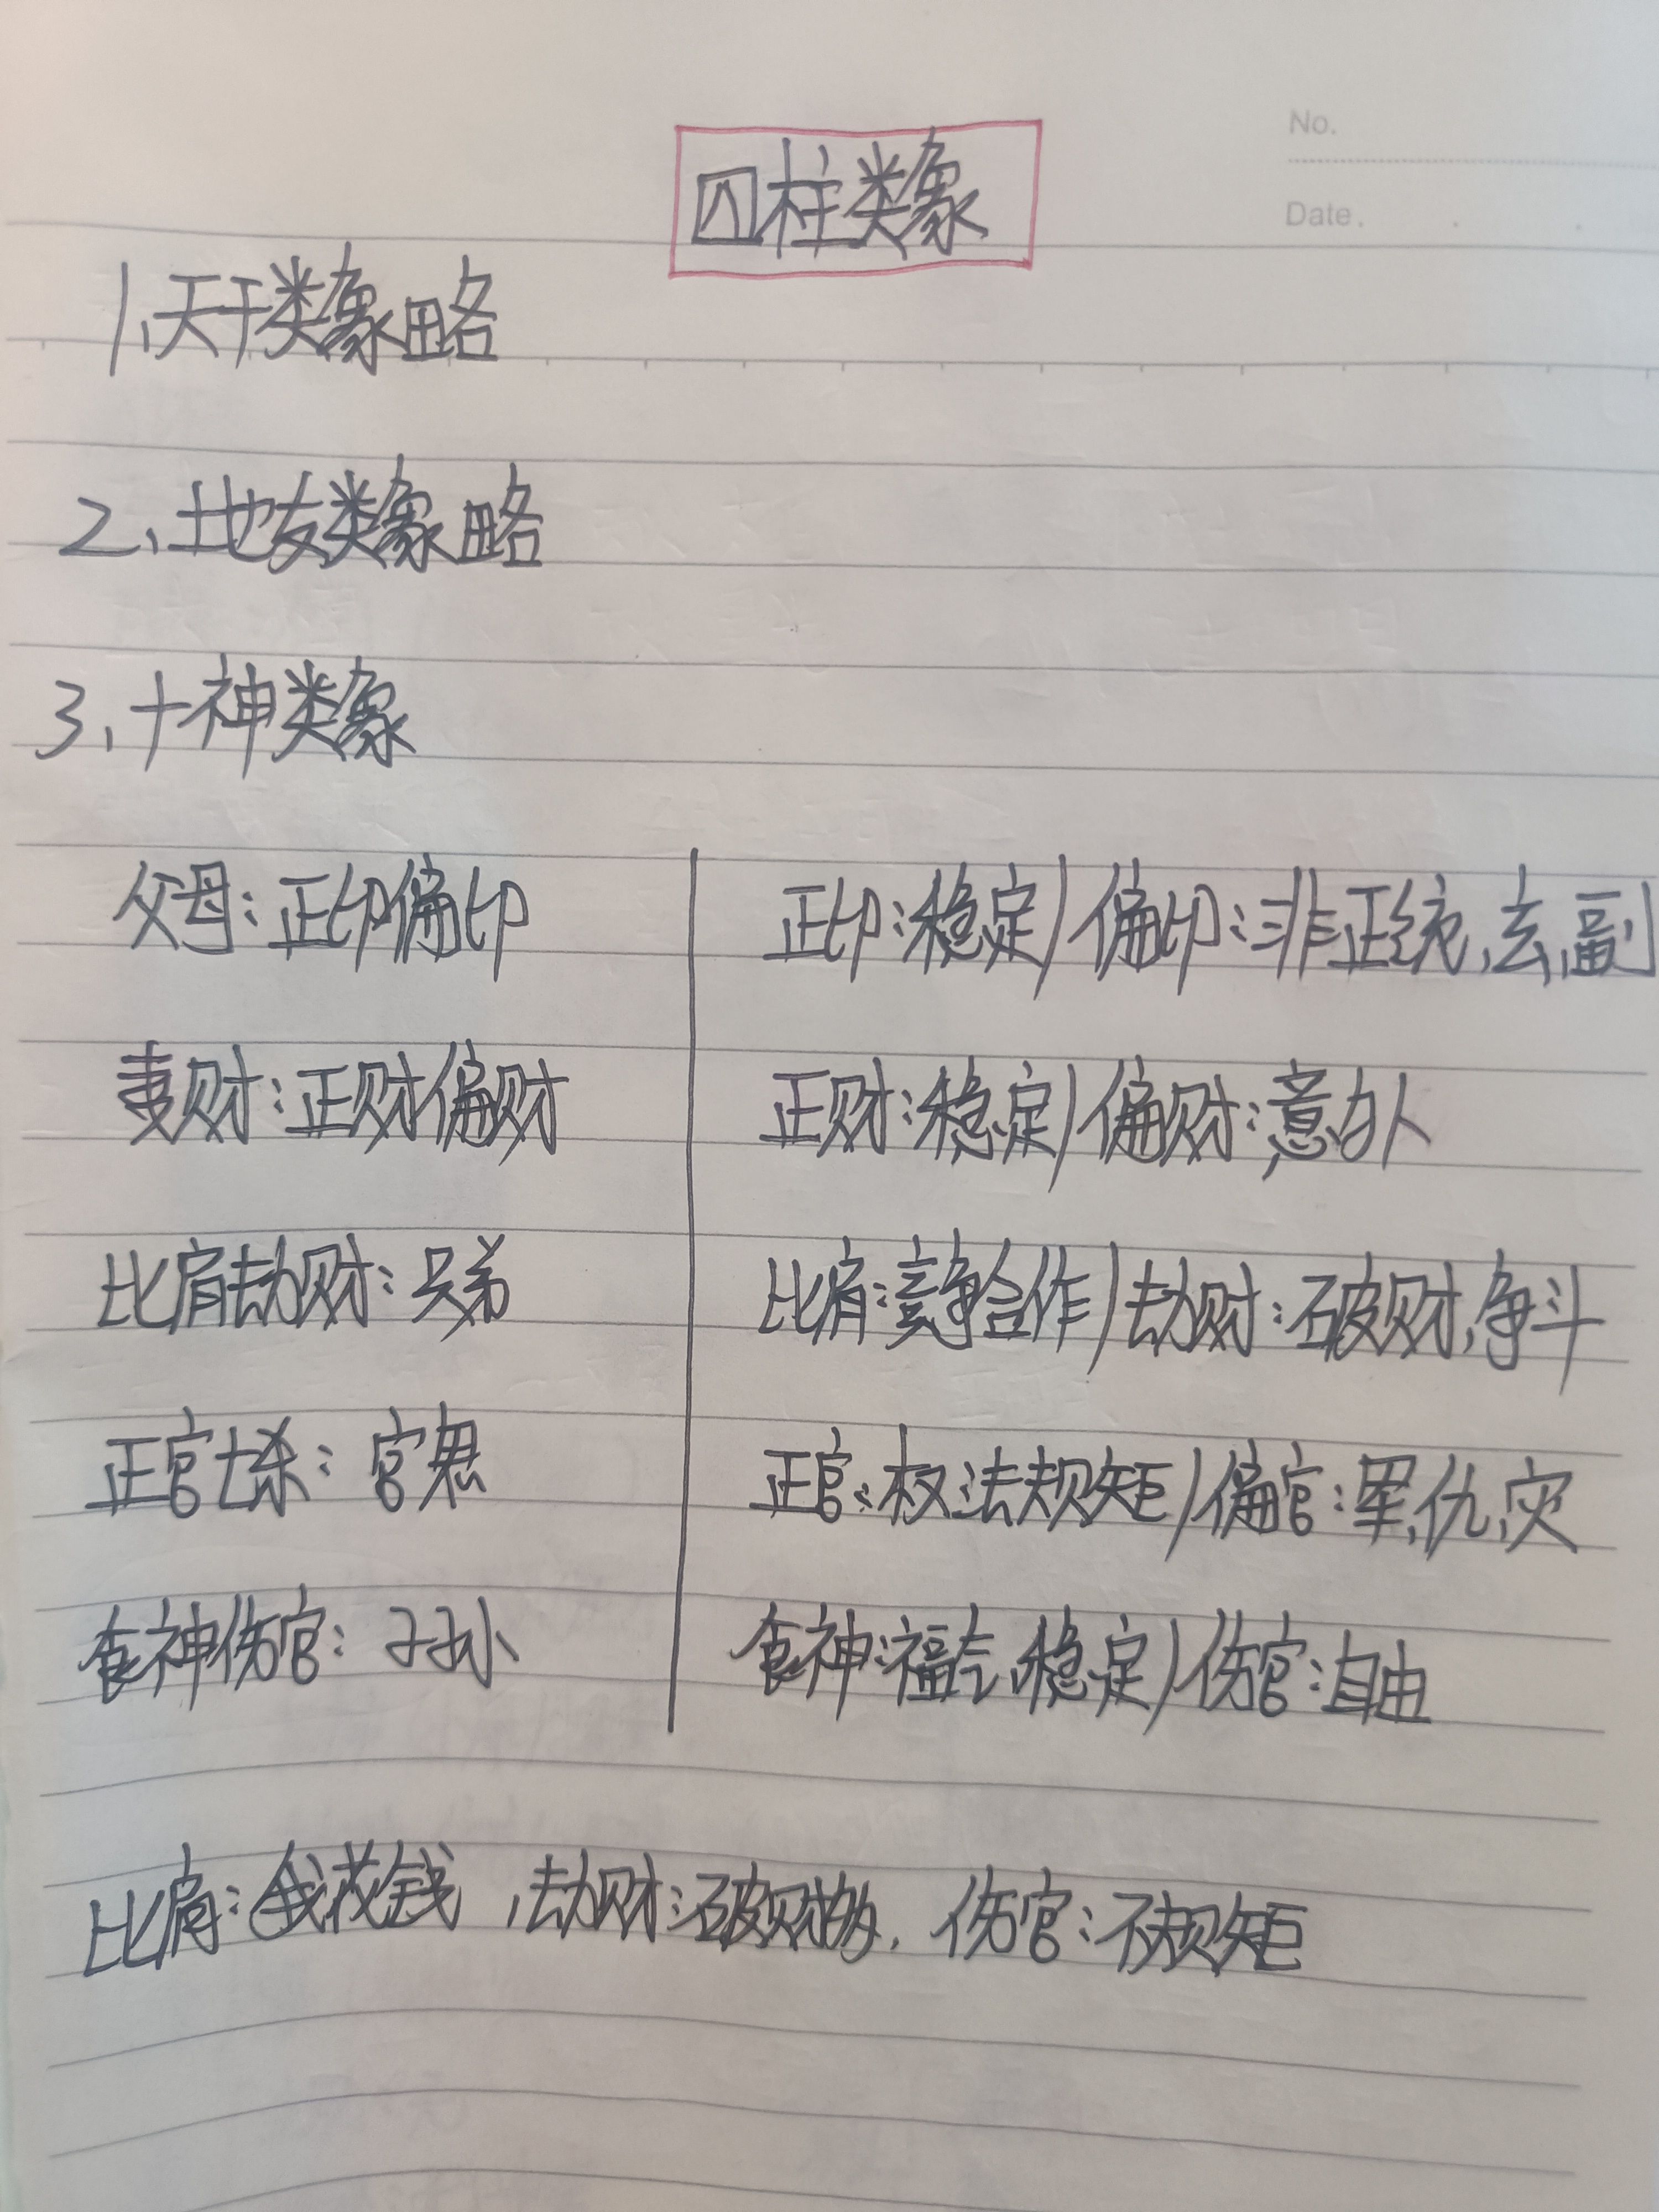 No.
Date.
四柱类象
1、天干类象略
2、地支类象略
3、十神类象
父母：正印偏印
正印：稳定/偏印：非正统，玄，副
妻财：正财偏财
正财：稳定/偏财：意外
比肩劫财：兄弟
比肩：竞争合作/劫财：破财，争斗
正官七杀：官鬼
正官：权法规矩/偏官：军，仇，灾
食神伤官：子孙
食神：福气，稳定/伤官：自由
比肩：我花钱，劫财：破财物，伤官：不规矩